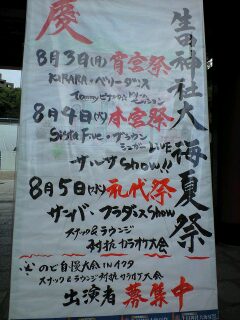 慶
生田神社大海夏祭
8月3日(日)宵宮祭
KIRARA・ベリーダンス
8月4日(月)本宮祭
Sista Five・ブラウン
シュガー LIVE
サルサ Show!!
8月5日(火)礼代祭
サンバ・フラダンスShow
スナック&ラウンジ
対抗カラオケ大会
のど自慢大会 IN イクタ
スナック&ラウンジ対抗カラオケ大会
出演者募集中